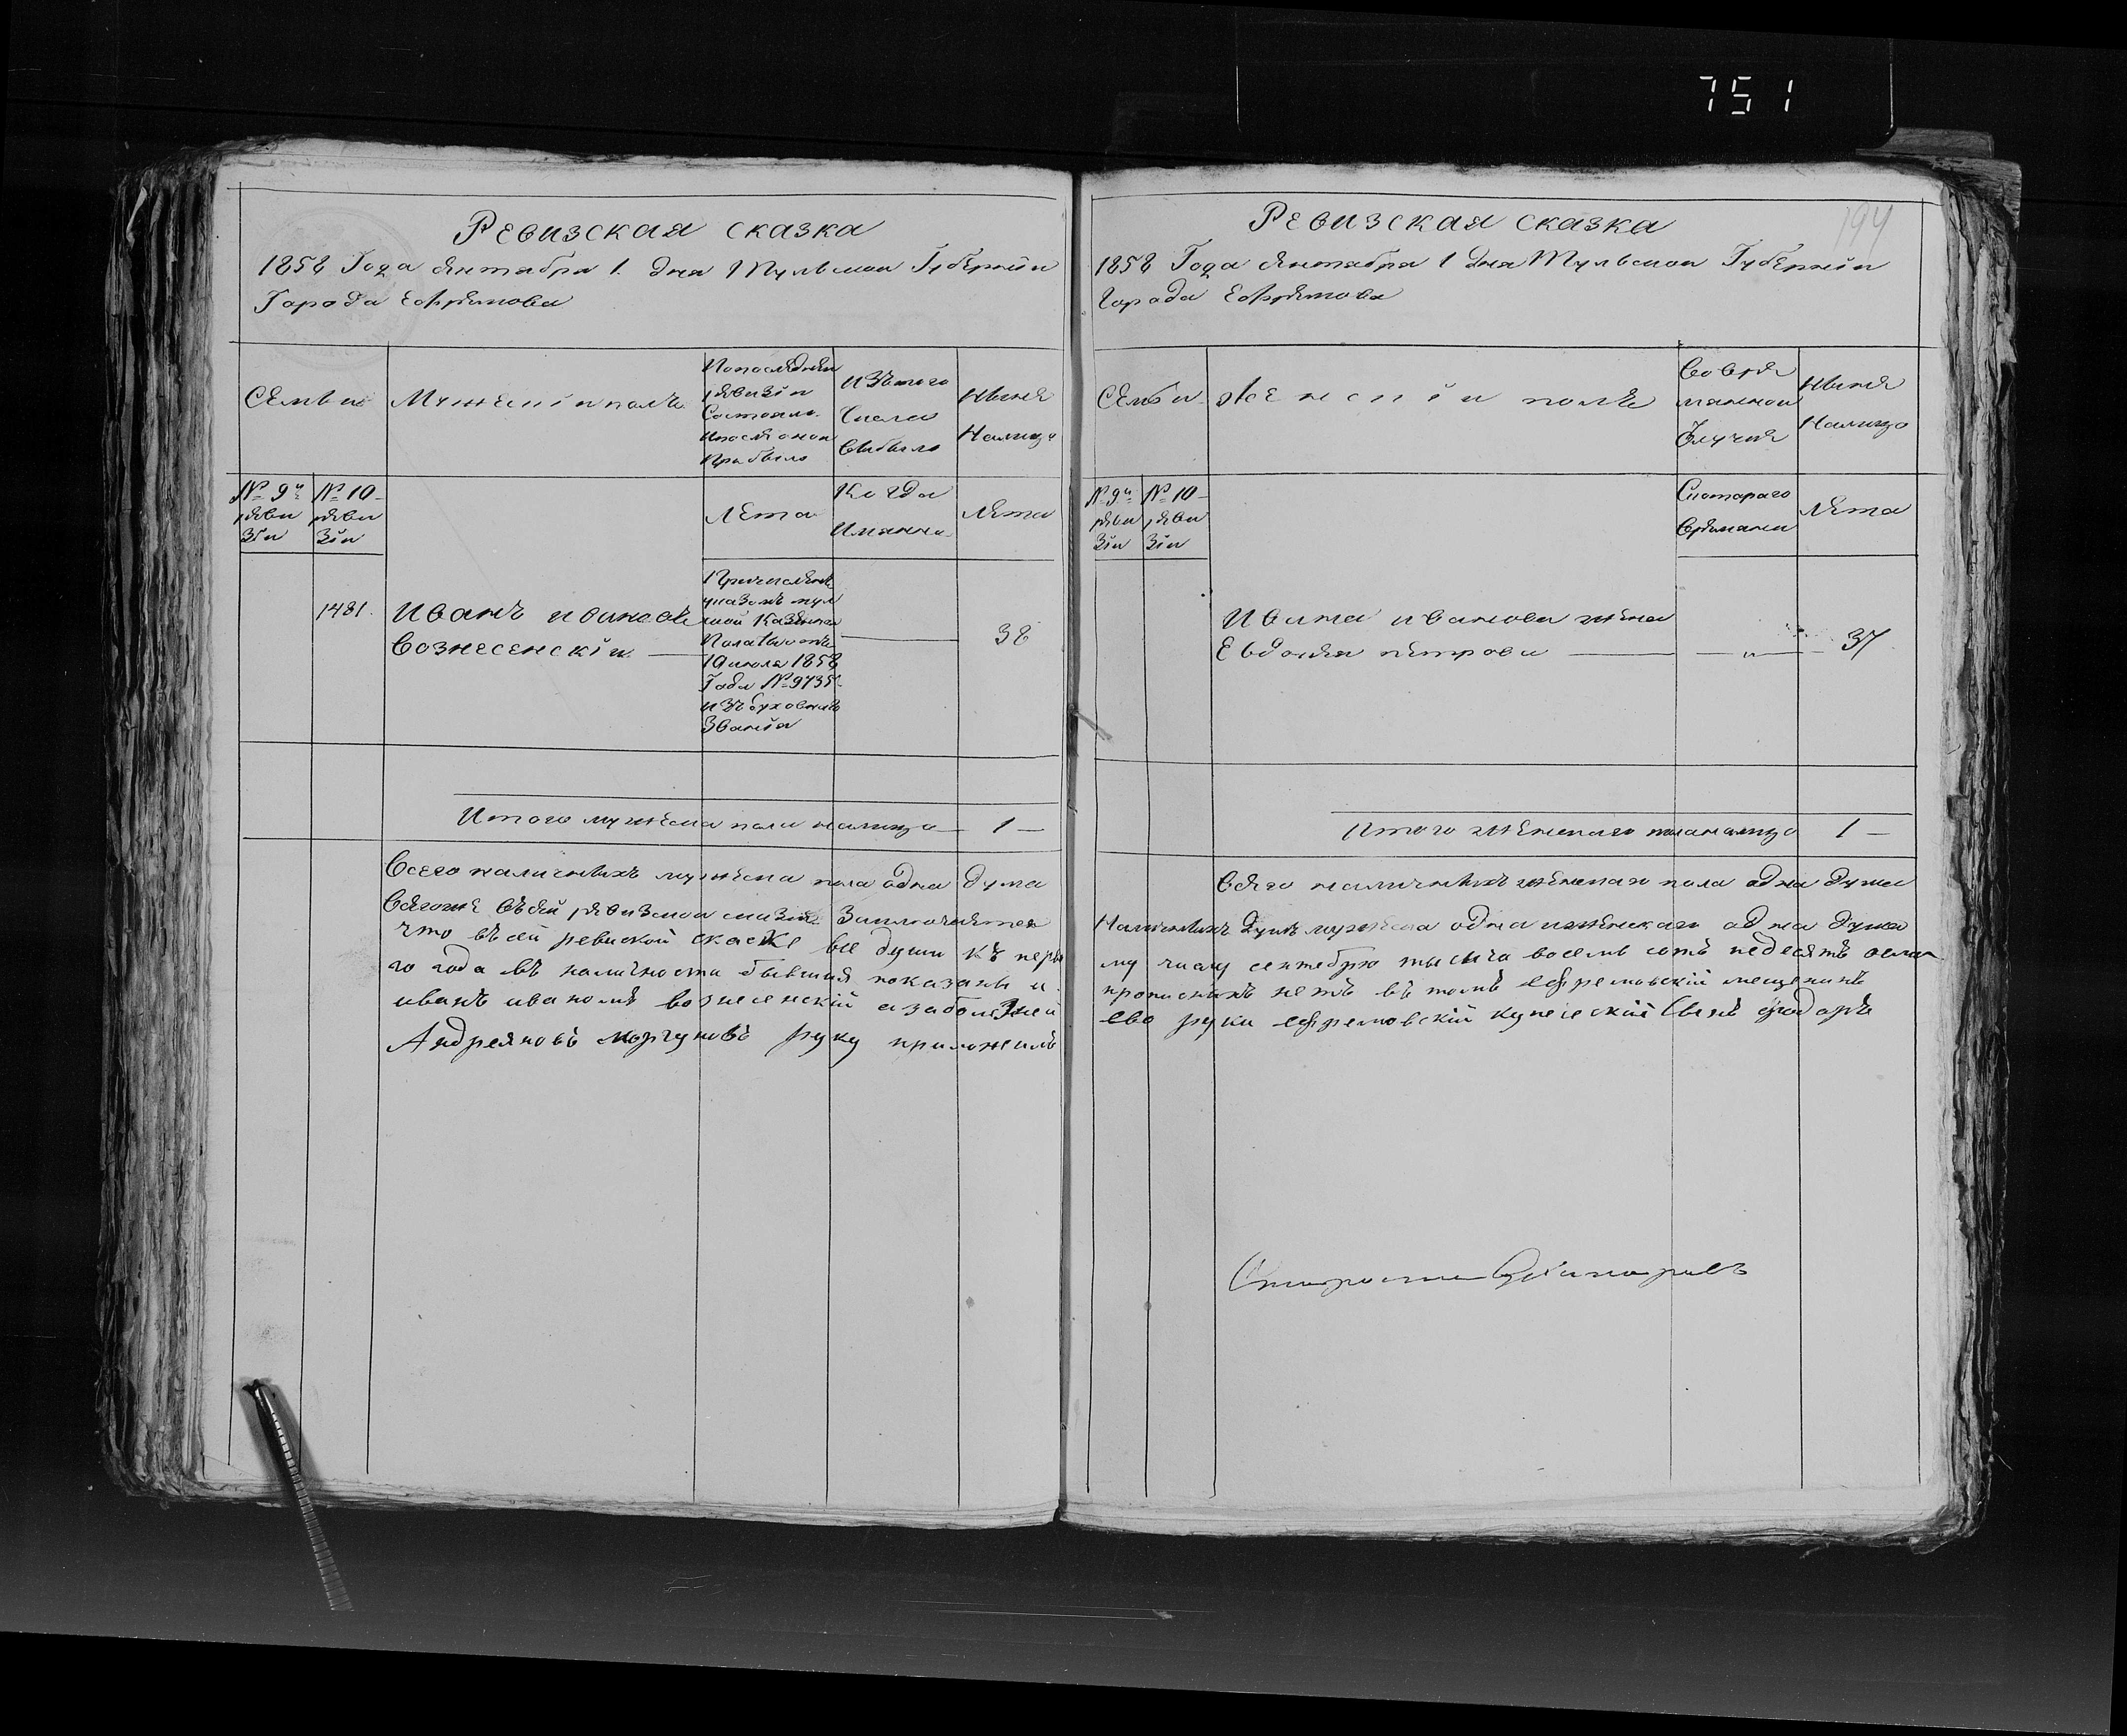 751
194
Ревизская сказка
1858 Года Сентября 1. дня Тульской Губерніи
Города Ефремова
Семьи
Мужескій полъ
По последней
ревизіи
Состояло
и после оной
Прибыло
Изъ того
Числа
Выбыло
Ныне
Налицо
№ 9й
реви
зіи
№ 10
реви
зіи
Лета
Когда
Имянно
Лета
1481.
Иванъ Ивановъ
Вознесенскій
Причисленъ
указомъ тул
ской Казенной
Палаты отъ
19 июля 1858
Года № 9735
изъ духовнаго
Званія
38
Итого мужеска пола налицо 1
Всего наличныхъ мужеска пола одна душа
Всего же въ сей ревизской сказке Заключается
что въ сей ревиской скаске все души къ перво
го года въ наличности бывшия показаны и
иванъ ивановъ вознесенскій а за болезнею
Андреяновъ моргуновъ руку приложилъ
Ревизская сказка
1858 Года Сентября 1 дня Тульской Губерніи
Города Ефремова
Семьи
Женскій полъ
Во вре
мянной
отлучке
Ныне
Налицо
№ 9й
реви
зіи
№ 10
реви
зіи
Скотораго
времяни
Лета
Ивана Иванова жена
Евдокея Петрова — " — 37
Итого женскаго пола налицо 1
Всего наличныхъ женскаго пола одна душа
Наличныхъ Душъ мужеска одна и женскаго одна душа
му числу сентебрю тысыча восемь сотъ педесятъ осма
прописныхъ нетъ въ томъ ефремовскій мещенинъ
ево руки ефремовскій купеческій Сынъ федоръ
Староста